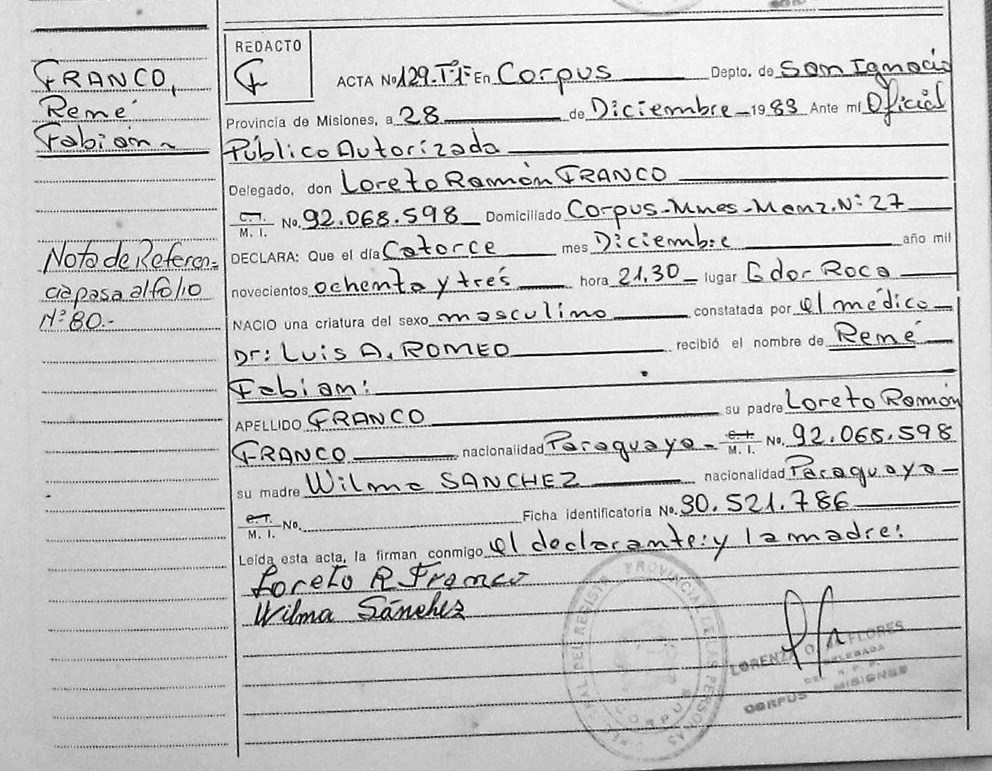 FRANCO,
René
Fabián
Nota de Referen=
cia pasa al folio
Nº 80.-
REDACTO
F
ACTA Nº 129.Tº1º En Corpus Depto. de San Ignacio
Provincia de Misiones, a 28 de Diciembre - 1983 Ante mí Oficial
Público Autorizada
Delegado, don Loreto Ramón FRANCO
C.I. M. I. No. 92.068.598 Domiciliado Corpus-Mnes-Manz.Nº 27
DECLARA: Que el día Catorce mes Diciembre año mil
novecientos ochenta y trés hora 21,30 - lugar Gdor Roca
NACIO una criatura del sexo masculino constatada por el médico
Dr: Luis A. ROMEO recibió el nombre de René
Fabian:
APELLIDO FRANCO su padre Loreto Ramón
FRANCO nacionalidad Paraguaya - C.I. M. I. No. 92.068.598
su madre Wilma SANCHEZ nacionalidad Paraguaya -
C.I. M. I. No. Ficha identificatoria No. 30.521.786
Leída esta acta, la firman conmigo el declarante: y la madre:
Loreto R Franco
Wilma Sánchez
PROVINCIAL DE LAS PERSONAS
CORPUS
LORENZA O. FLORES
DELEGADA
CORPUS MISIONES